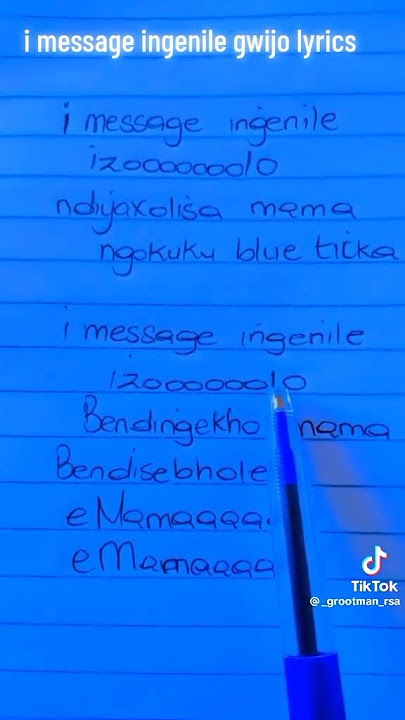 i message ingenile gwijo lyrics
i message ingenile
izoooooooolo
ndiyaxolisa mama
ngokuku blue ticka
i message ingenile
izooooooolo
Bendingekho mama
Bendisebhole
eMamaaaa.
eMamaaaa
TikTok
@_grootman_rsa